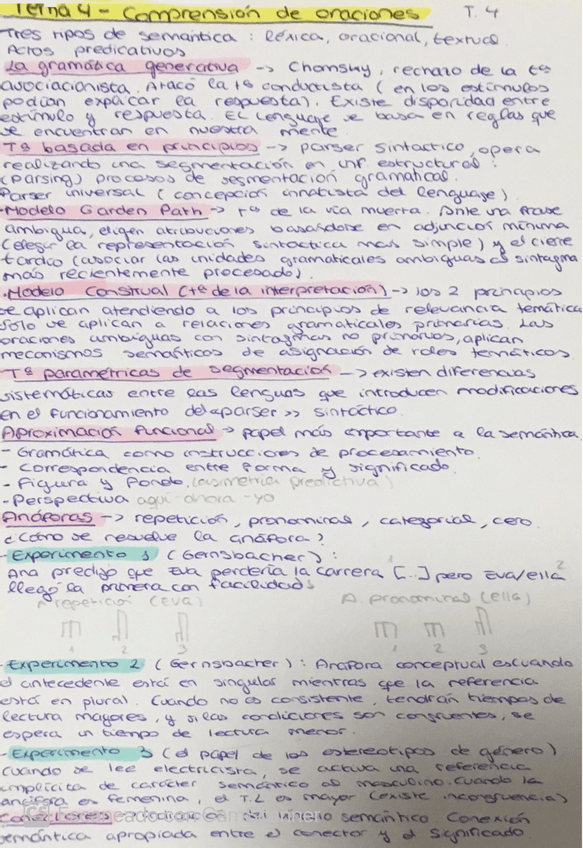 Tema 4 - Comprensión de oraciones T. 4
Tres tipos de semántica: léxica, oracional, textual
Actos predicativos
La gramática generativa -> Chomsky, rechazo de la tª
asociacionista. Atacó la tª conductista (en los estímulos
podían explicar la respuesta). Existe disparidad entre
estímulo y respuesta. El lenguaje se basa en reglas que
se encuentran en nuestra mente.
Tª basada en principios -> parser sintáctico, opera
realizando una segmentación en inf estructural:
(Parsing) procesos de segmentación gramatical.
Parser universal (concepción innatista del lenguaje).
-Modelo Garden Path -> tª de la vía muerta. Ante una frase
ambigua, eligen atribuciones basándose en adjunción mínima
(elegir la representación sintáctica más simple) y el cierre
tardío (asociar las unidades gramaticales ambiguas al sintagma
más recientemente procesado).
-Modelo Construal (tª de la interpretación) -> los 2 principios
se aplican atendiendo a los principios de relevancia temática
solo se aplican a relaciones gramaticales primarias. Las
oraciones ambiguas con sintagmas no primarios, aplican
mecanismos semánticos de asignación de roles temáticos.
Tª paramétricas de segmentación -> existen diferencias
sistemáticas entre las lenguas que introducen modificaciones
en el funcionamiento del «parser» sintáctico.
Aproximación funcional -> papel más importante a la semántica
- Gramática como instrucciones de procesamiento.
- Correspondencia entre forma y significado.
- Figura y Fondo. (asimetría predictiva)
- Perspectiva aquí-ahora-yo
Anáforas -> repetición, pronominal, categorial, cero.
¿Cómo se resuelve la anáfora?
-Experimento 1 (Gernsbacher):
Ana predijo que Eva perdería la carrera [..] pero Eva/ella
llegó la primera con facilidad
1 2
A repetición (Eva) A. pronominal (ella)
1 2 3 1 2 3
-Experimento 2 (Gernsbacher): Anáfora conceptual es cuando
el antecedente está en singular mientras que la referencia
está en plural. Cuando no es consistente, tendrán tiempos de
lectura mayores, y si las condiciones son congruentes, se
espera un tiempo de lectura menor.
-Experimento 3 (el papel de los estereotipos de género)
Cuando se lee electricista, se activa una referencia
implícita de carácter semántico al masculino. Cuando la
anáfora es femenina, el T.L es mayor (existe incongruencia)
Conectores semántico. Conexión
semántica apropiada entre el conector y el significado.